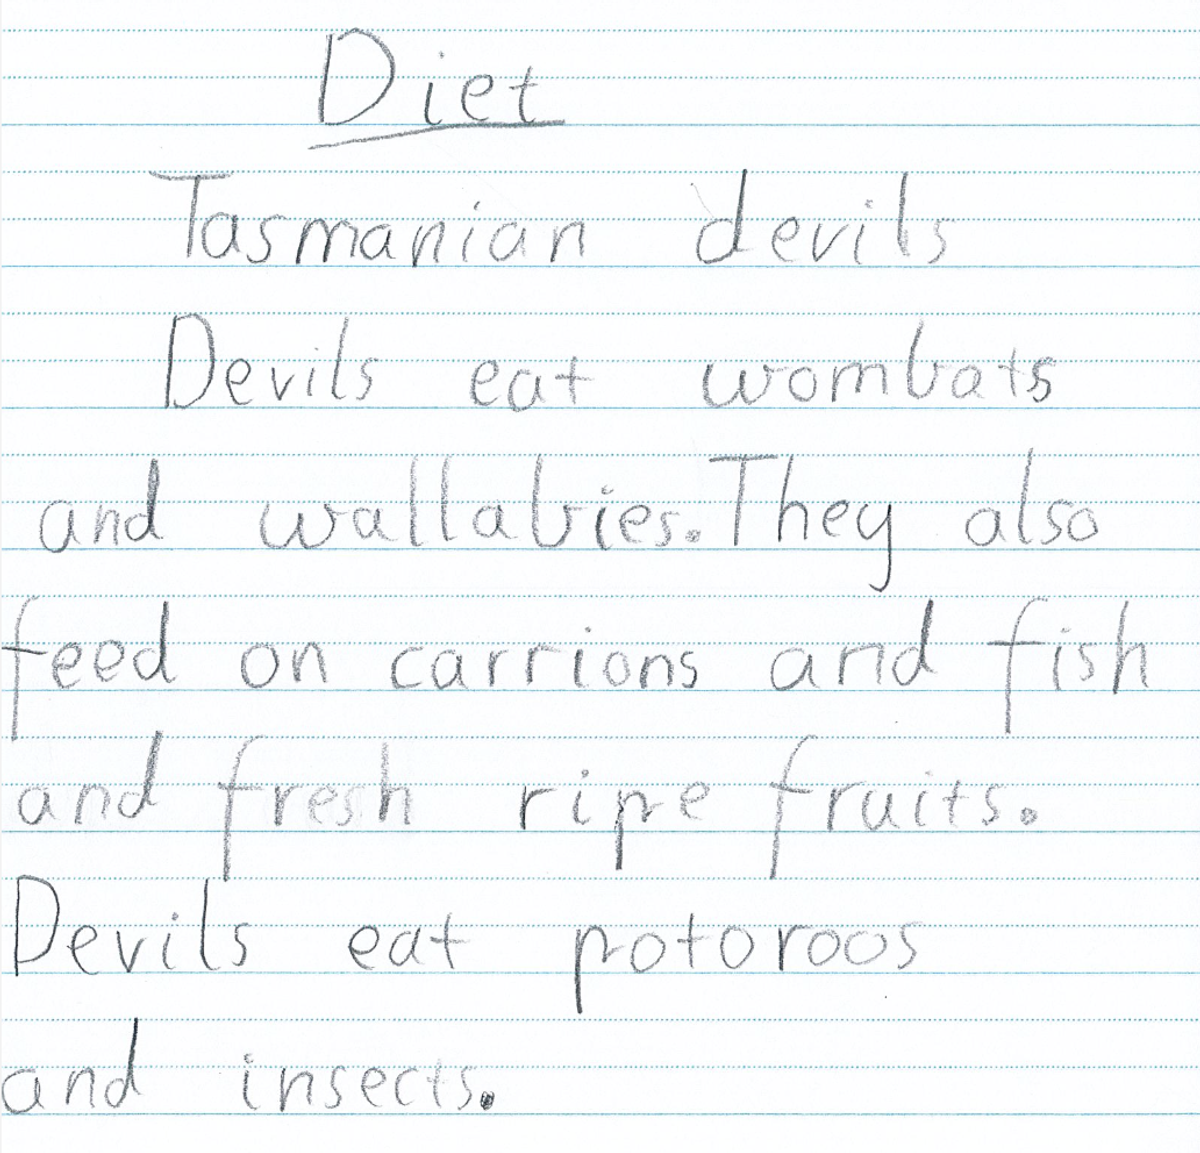 Diet
Tasmanian devils
Devils eat wombats
and wallabies. They also
feed on carrions and fish
and fresh ripe fruits.
Devils eat potoroos
and insects.